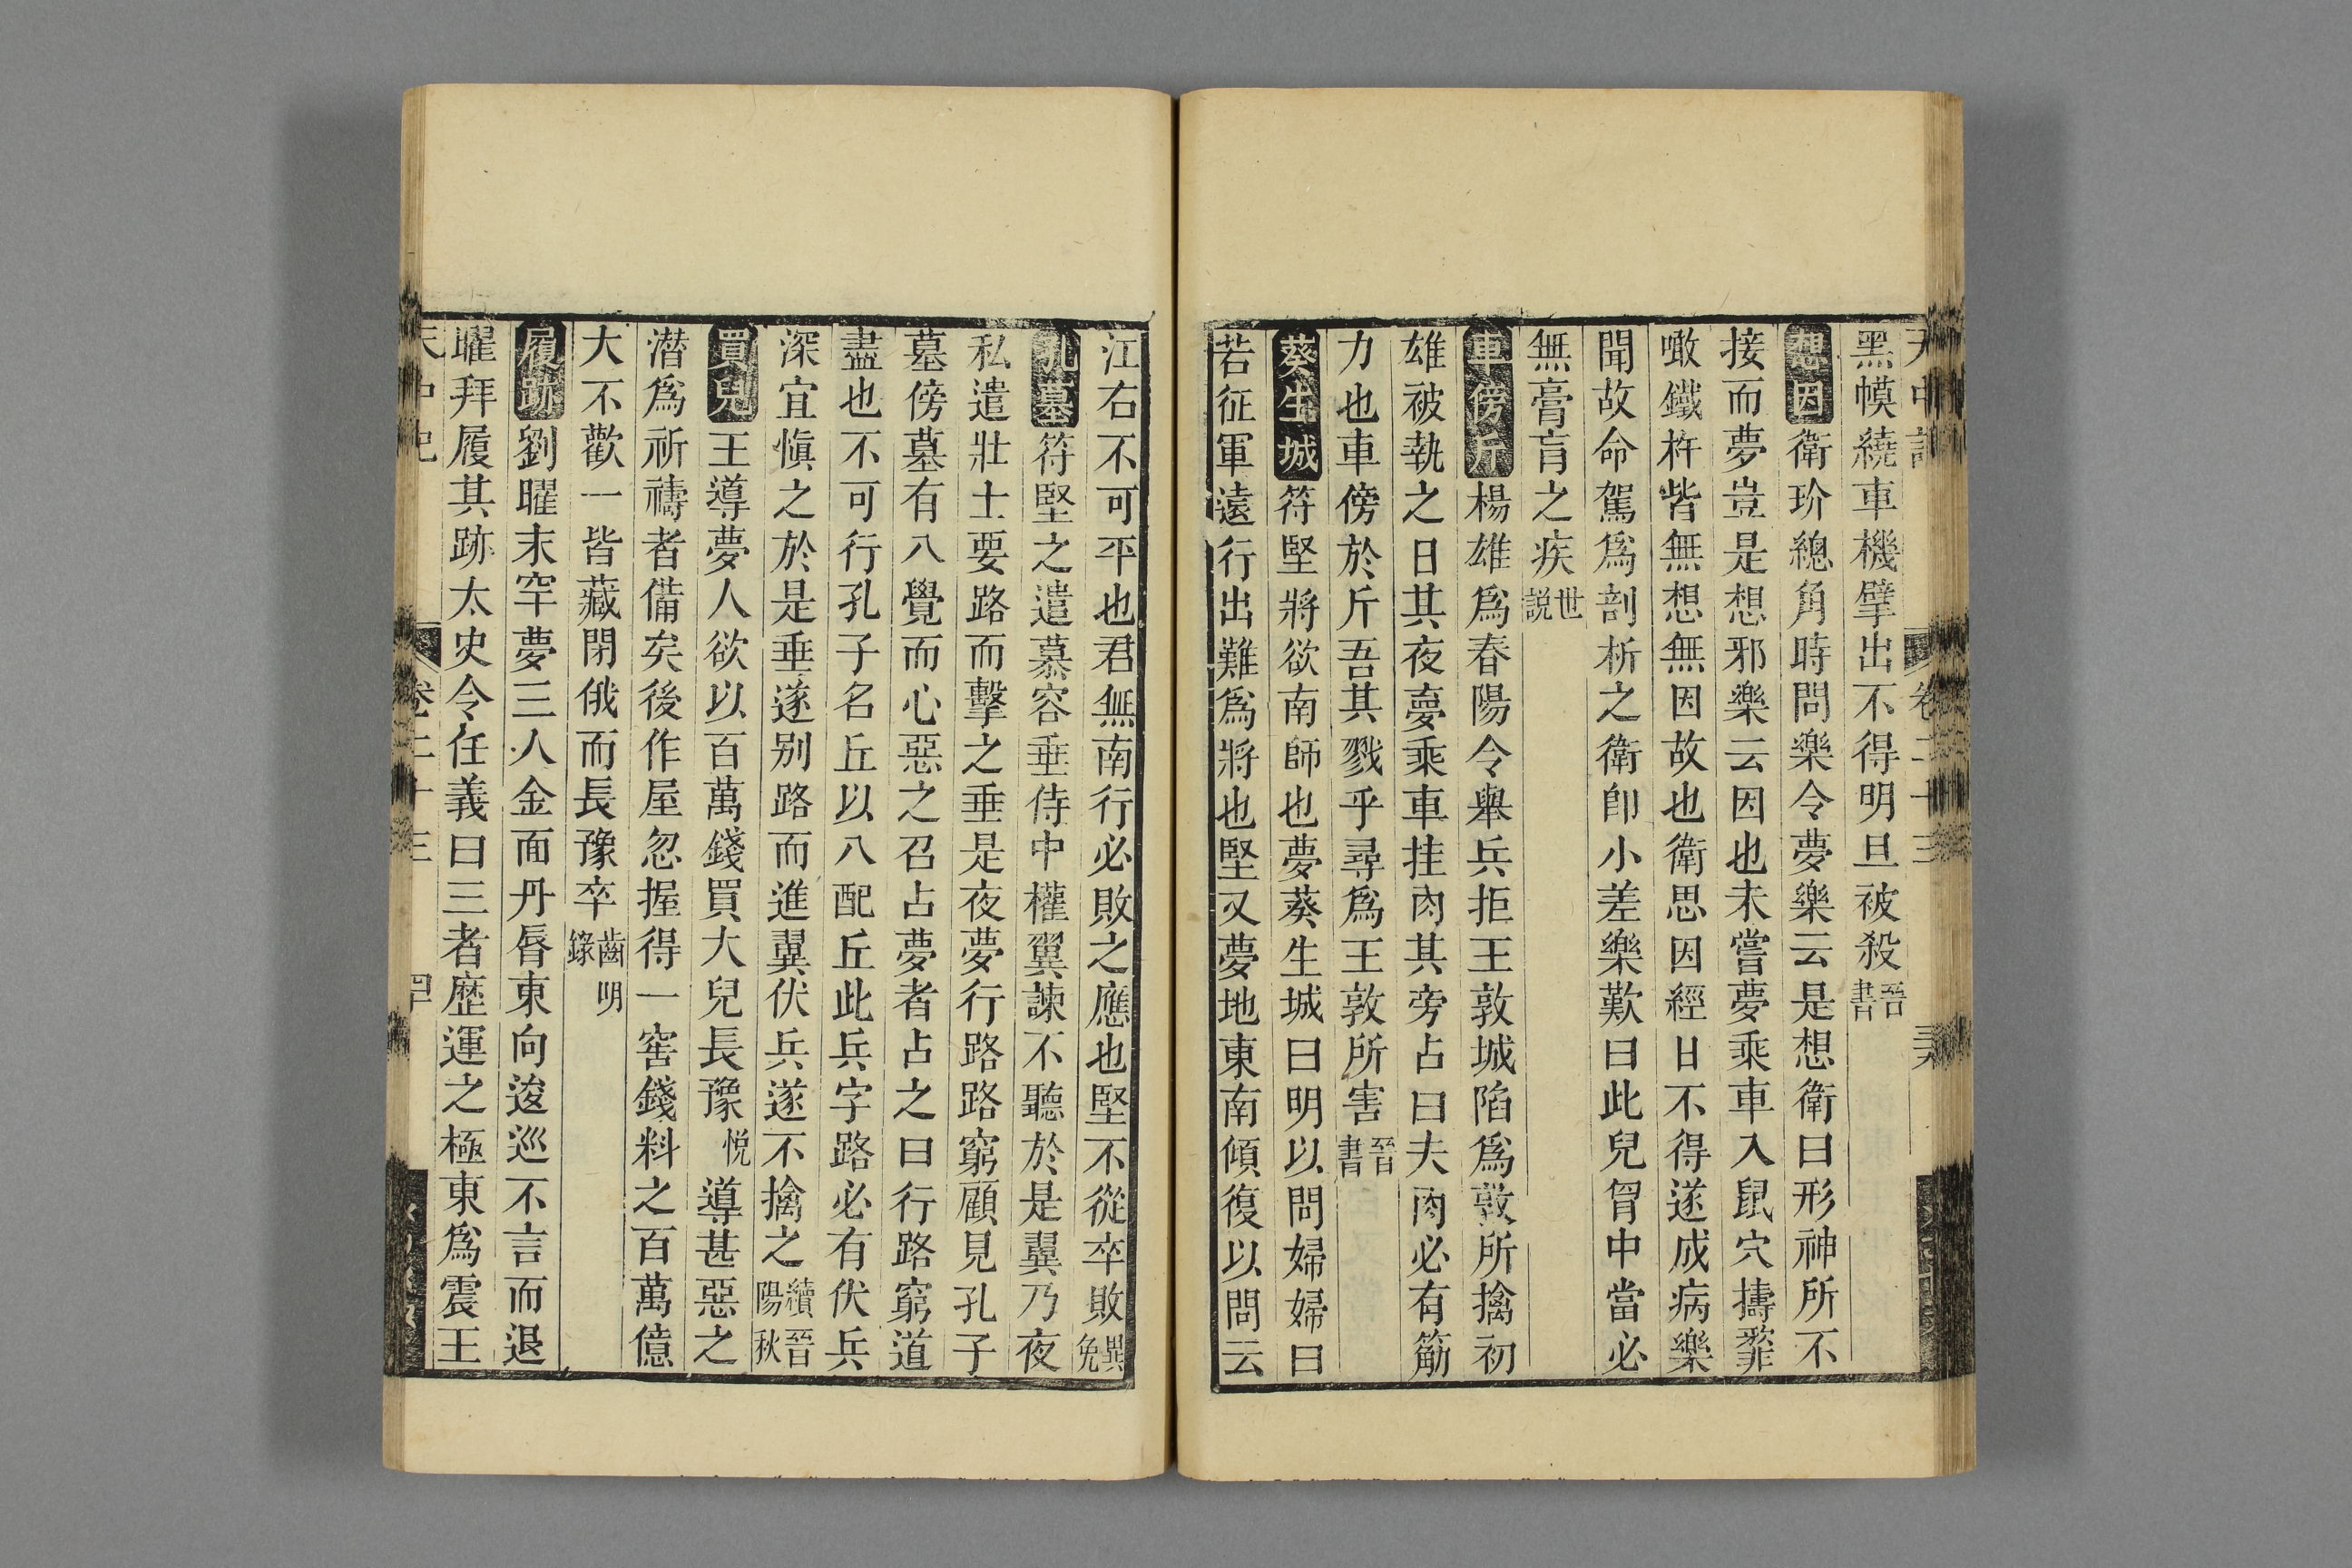 黑幙繞車機擘出不得明旦被殺晉書
想因衛玠總角時問樂令夢樂云是想衛曰形神所不
接而夢豈是想邪樂云因也未嘗夢乘車入鼠穴擣虀
噉鐵杵皆無想無因故也衛思因經日不得遂成病樂
聞故命駕爲剖析之衛卽小差樂歎曰此兒胷中當必
無膏肓之疾世説
車傍斤楊雄爲春陽令舉兵拒王敦城陷爲敦所擒初
雄被執之日其夜夢乘車挂肉其旁占曰夫肉必有筋
力也車傍於斤吾其戮乎尋爲王敦所害晉書
葵生城符堅將欲南師也夢葵生城曰明以問婦婦曰
若征軍遠行出難爲將也堅又夢地東南傾復以問云
江右不可平也君無南行必敗之應也堅不從卒敗異免
孔墓符堅之遣慕容垂侍中權翼諫不聽於是翼乃夜
私遣壯士要路而擊之垂是夜夢行路路窮顧見孔子
墓傍墓有八覺而心惡之召占夢者占之曰行路窮道
盡也不可行孔子名丘以八配丘此兵字路必有伏兵
深宜愼之於是垂遂别路而進翼伏兵遂不擒之續晉陽秋
買兒王導夢人欲以百萬錢買大兒長豫悅導甚惡之
潜爲祈禱者備矣後作屋忽掘得一窖錢料之百萬億
大不歡一皆藏閉俄而長豫卒幽明錄
履跡劉曜末年夢三人金面丹唇東向逡巡不言而退
曜拜履其跡太史令任義曰三者歴運之極東爲震王